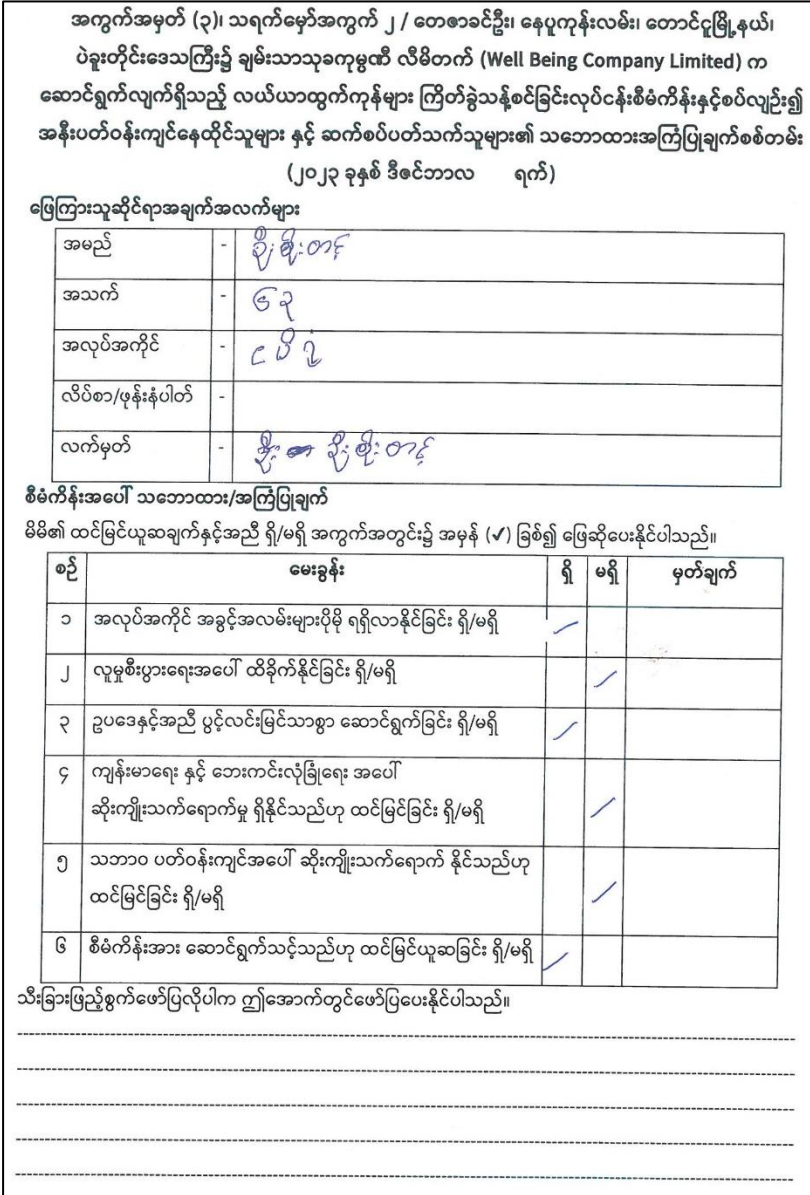 အကွက်အမှတ် (၃)၊ သရက်မှော်အကွက် ၂ / တေဇာခင်ဦး၊ နေပူကုန်းလမ်း၊ တောင်ငူမြို့နယ်၊
ပဲခူးတိုင်းဒေသကြီး၌ ချမ်းသာသုခကုမ္ပဏီ လီမိတက် (Well Being Company Limited) က
ဆောင်ရွက်လျက်ရှိသည့် လယ်ယာထွက်ကုန်များ ကြိတ်ခွဲသန့်စင်ခြင်းလုပ်ငန်းစီမံကိန်းနှင့်စပ်လျဉ်း၍
အနီးပတ်ဝန်းကျင်နေထိုင်သူများ နှင့် ဆက်စပ်ပတ်သက်သူများ၏ သဘောထားအကြံပြုချက်စစ်တမ်း
(၂၀၂၃ ခုနှစ် ဒီဇင်ဘာလ ရက်)
ဖြေကြားသူဆိုင်ရာအချက်အလက်များ
အမည် -
အသက် - ၆၃
အလုပ်အကိုင် -
လိပ်စာ/ဖုန်းနံပါတ် -
လက်မှတ် -
စီမံကိန်းအပေါ် သဘောထား/အကြံပြုချက်
မိမိ၏ ထင်မြင်ယူဆချက်နှင့်အညီ ရှိ/မရှိ အကွက်အတွင်း၌ အမှန် (✓) ခြစ်၍ ဖြေဆိုပေးနိုင်ပါသည်။
စဉ် မေးခွန်း ရှိ မရှိ မှတ်ချက်
၁ အလုပ်အကိုင် အခွင့်အလမ်းများပိုမို ရရှိလာနိုင်ခြင်း ရှိ/မရှိ ✓
၂ လူမှုစီးပွားရေးအပေါ် ထိခိုက်နိုင်ခြင်း ရှိ/မရှိ ✓
၃ ဥပဒေနှင့်အညီ ပွင့်လင်းမြင်သာစွာ ဆောင်ရွက်ခြင်း ရှိ/မရှိ ✓
၄ ကျန်းမာရေး နှင့် ဘေးကင်းလုံခြုံရေး အပေါ်
ဆိုးကျိုးသက်ရောက်မှု ရှိနိုင်သည်ဟု ထင်မြင်ခြင်း ရှိ/မရှိ ✓
၅ သဘာဝ ပတ်ဝန်းကျင်အပေါ် ဆိုးကျိုးသက်ရောက် နိုင်သည်ဟု
ထင်မြင်ခြင်း ရှိ/မရှိ ✓
၆ စီမံကိန်းအား ဆောင်ရွက်သင့်သည်ဟု ထင်မြင်ယူဆခြင်း ရှိ/မရှိ ✓
သီးခြားဖြည့်စွက်ဖော်ပြလိုပါက ဤအောက်တွင်ဖော်ပြပေးနိုင်ပါသည်။